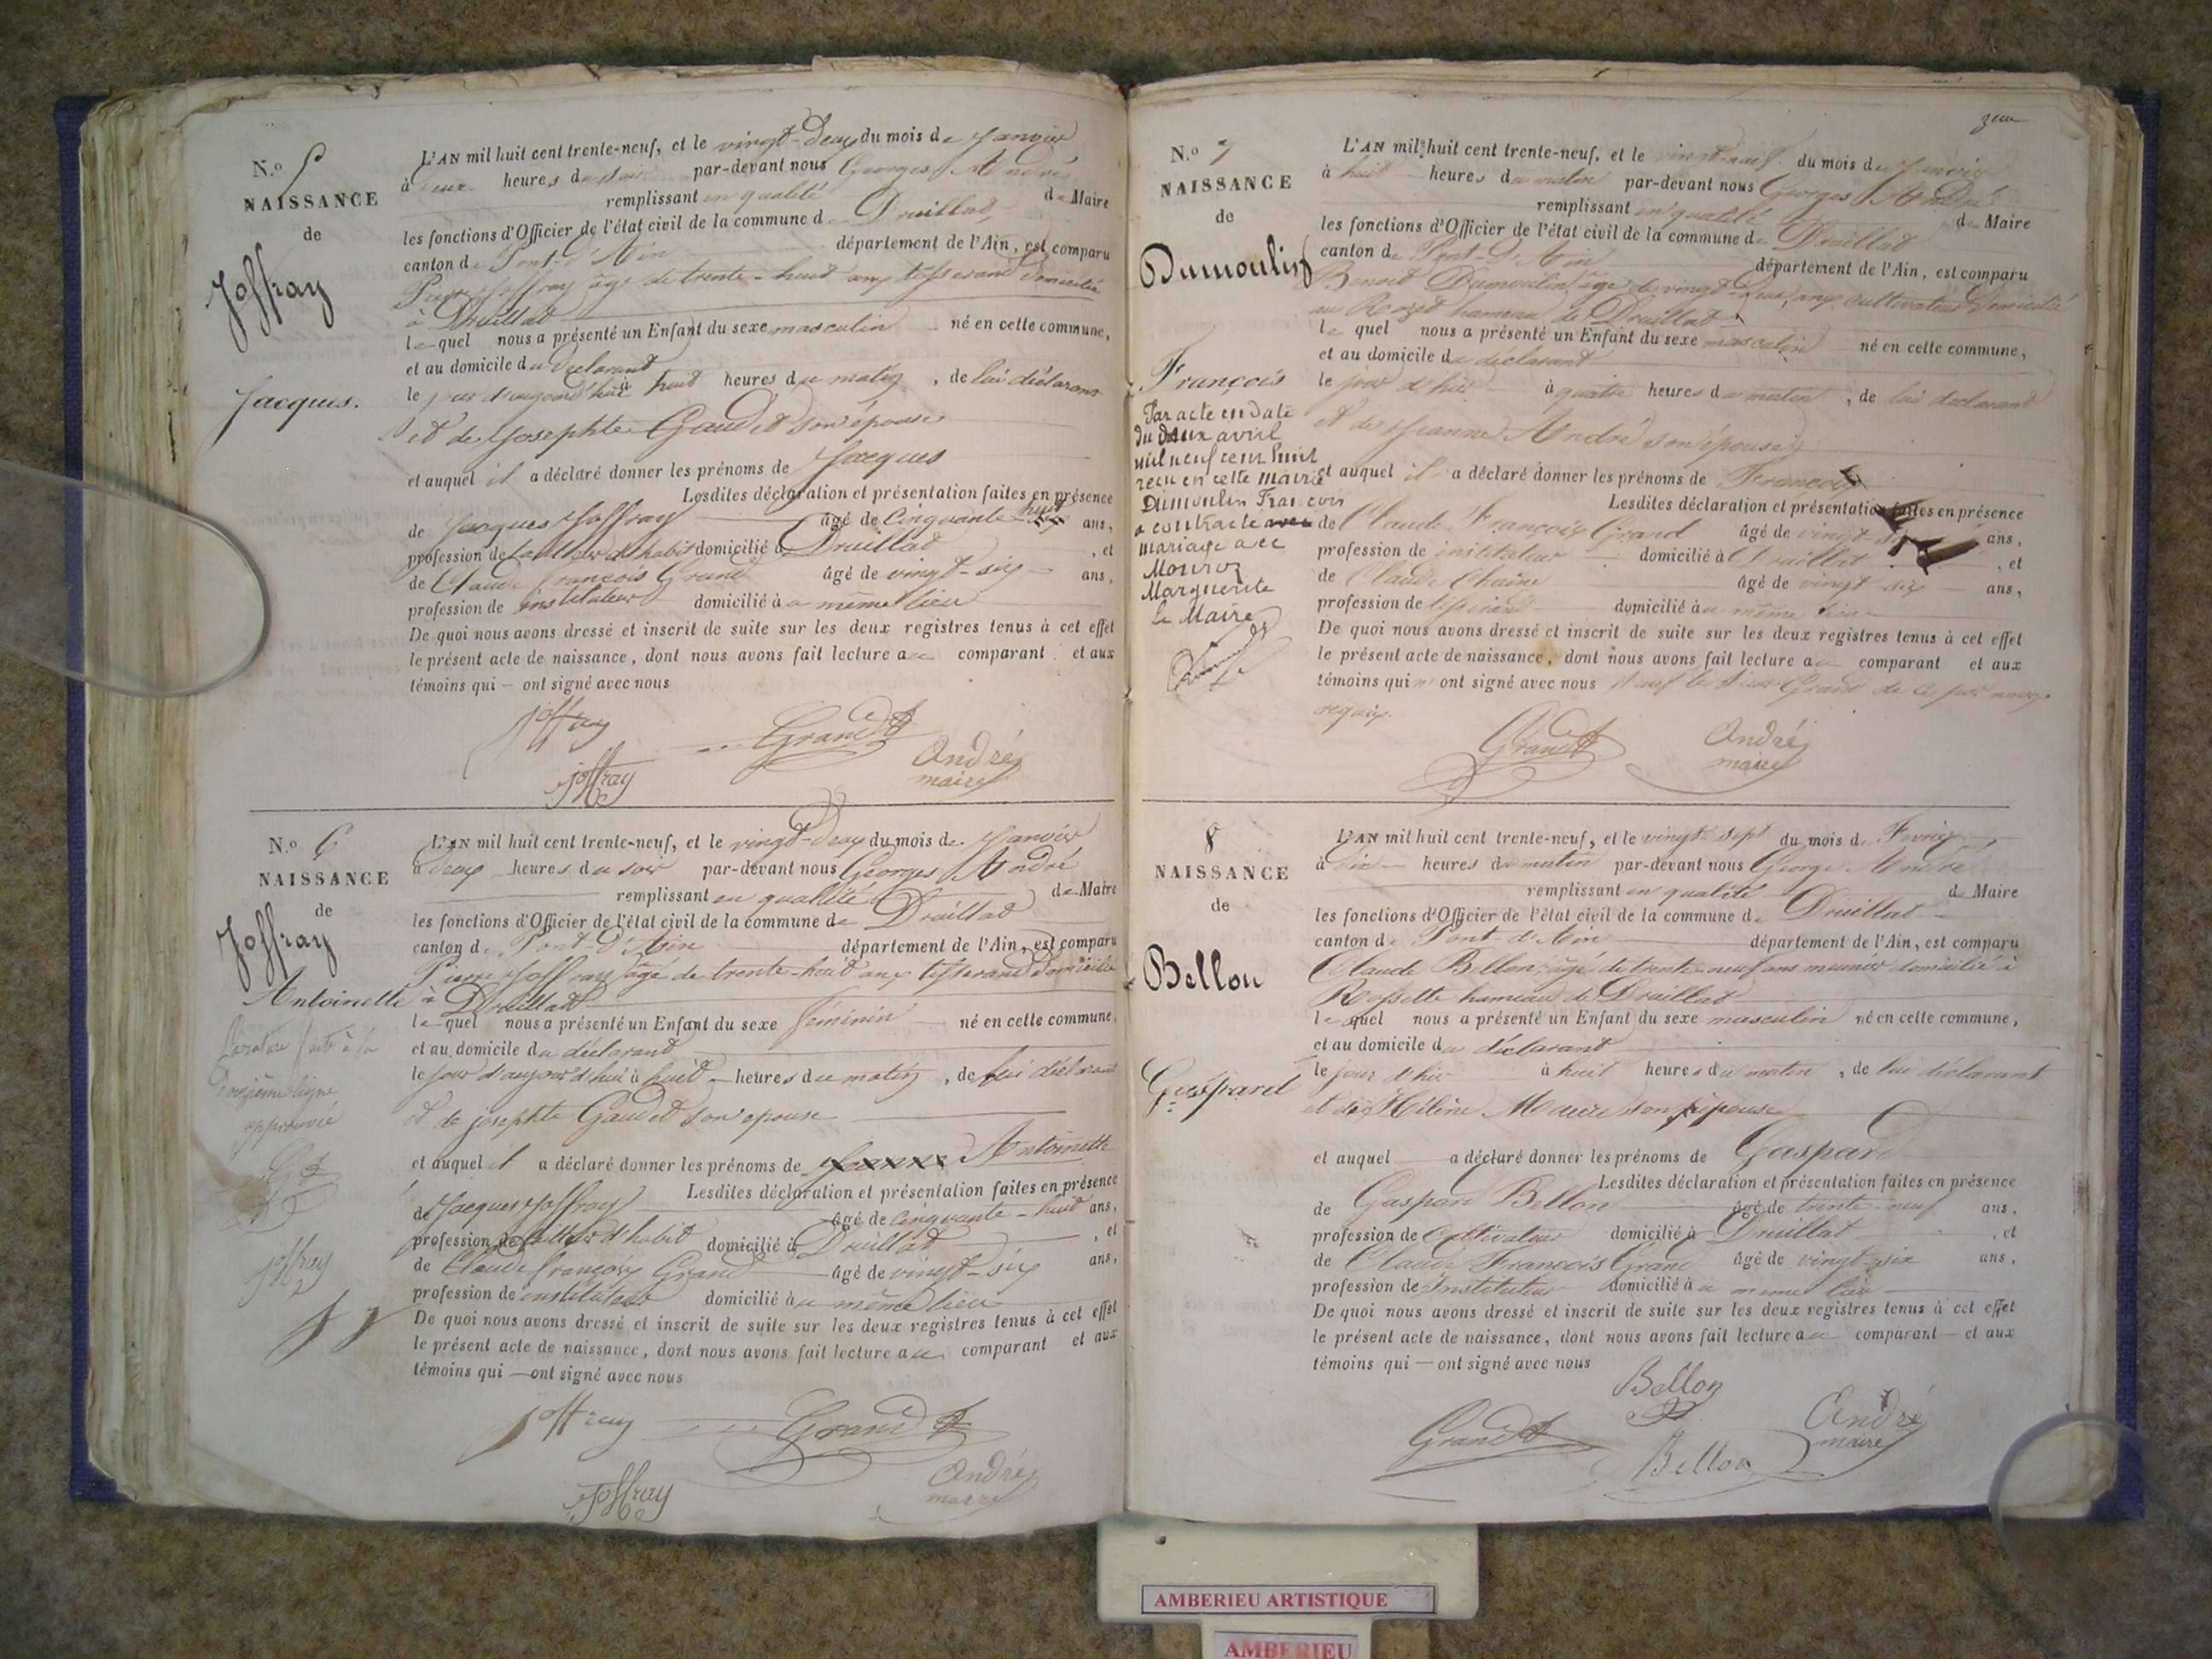 N.o 5
NAISSANCE
de
Joffray
Jacques.
L'AN mil huit cent trente-neuf, et le vingt-deux du mois de Janvier
à deux heures du soir par-devant nous Georges André
remplissant en qualité de Maire
les fonctions d'Officier de l'état civil de la commune de Druillat
canton de Pont-d'Ain département de l'Ain, est comparu
Pierre Joffray âgé de trente-huit ans tisserand domicilié
à Druillat
lequel nous a présenté un Enfant du sexe masculin né en cette commune,
et au domicile du déclarant
le jour d'aujourd'hui à huit heures du matin, de lui déclarant
et de Josephte Gaudet son épouse
et auquel il a déclaré donner les prénoms de Jacques
Lesdites déclaration et présentation faites en présence
de Jacques Joffray âgé de cinquante huit ans,
profession de tailleur d'habit domicilié à Druillat, et
de Claude françois Grand âgé de vingt-six ans,
profession de instituteur domicilié au même lieu
De quoi nous avons dressé et inscrit de suite sur les deux registres tenus à cet effet
le présent acte de naissance, dont nous avons fait lecture au comparant et aux
témoins qui — ont signé avec nous
joffray Grand André
joffray maire
N.o 6
NAISSANCE
de
Joffray
Antoinette
approuvée
joffray
L'AN mil huit cent trente-neuf, et le vingt-deux du mois de Janvier
à deux heures du soir par-devant nous Georges André
remplissant en qualité de Maire
les fonctions d'Officier de l'état civil de la commune de Druillat
canton de Pont-d'Ain département de l'Ain, est comparu
Pierre Joffray âgé de trente-huit ans tisserand domicilié
à Druillat
lequel nous a présenté un Enfant du sexe féminin né en cette commune,
et au domicile du déclarant
le jour d'aujourd'hui à huit heures du matin, de lui déclarant
et de josephte Gaudet son epouse
et auquel il a déclaré donner les prénoms de Antoinette
Lesdites déclaration et présentation faites en présence
de Jacques Joffray âgé de cinquante-huit ans,
profession de tailleur d'habit domicilié à Druillat, et
de Claude françois Grand âgé de vingt-six ans,
profession de instituteur domicilié au même lieu
De quoi nous avons dressé et inscrit de suite sur les deux registres tenus à cet effet
le présent acte de naissance, dont nous avons fait lecture au comparant et aux
témoins qui — ont signé avec nous
joffray Grand
joffray André
maire
N.o 7
NAISSANCE
de
Dumoulin
François
Par acte en date
du deux avril
mil neuf cent huit
reçu en cette mairie
Dumoulin François
a contracté
mariage avec
Mouroz
Marguerite
Le Maire
L'AN mil huit cent trente-neuf, et le vingt-neuf du mois de Janvier
à huit heures du matin par-devant nous Georges André
remplissant en qualité de Maire
les fonctions d'Officier de l'état civil de la commune de Druillat
canton de Pont-d'Ain département de l'Ain, est comparu
Benoit Dumoulin âgé de vingt-deux ans cultivateur domicilié
au hameau de Druillat
lequel nous a présenté un Enfant du sexe masculin né en cette commune,
et au domicile du déclarant
le jour d'hier à quatre heures du matin, de lui déclarant
et de Jeanne André son épouse
et auquel il a déclaré donner les prénoms de François
Lesdites déclaration et présentation faites en présence
de Claude François Grand âgé de vingt-six ans,
profession de instituteur domicilié à Druillat, et
de Claude Chaine âgé de vingt-six ans,
profession de tisserand domicilié au même lieu
De quoi nous avons dressé et inscrit de suite sur les deux registres tenus à cet effet
le présent acte de naissance, dont nous avons fait lecture au comparant et aux
témoins qui ont signé avec nous sauf le Grand de ce par nous
requis.
Grand André
maire
8
NAISSANCE
de
Bellon
Gaspard
L'AN mil huit cent trente-neuf, et le vingt-sept du mois de Fevrier
à heures du matin par-devant nous George André
remplissant en qualité de Maire
les fonctions d'Officier de l'état civil de la commune de Druillat
canton de Pont-d'Ain département de l'Ain, est comparu
Claude Bellon, âgé de trente-neuf ans meunier domicilié à
Rossette hameau de Druillat
lequel nous a présenté un Enfant du sexe masculin né en cette commune,
et au domicile du déclarant
le jour d'hier à huit heures du matin, de lui déclarant
et de Hélène son épouse
et auquel a déclaré donner les prénoms de Gaspard
Lesdites déclaration et présentation faites en présence
de Gaspard Bellon âgé de trente-neuf ans,
profession de Cultivateur domicilié à Druillat, et
de Claude François Grand âgé de vingt-six ans,
profession de Instituteur domicilié au même lieu
De quoi nous avons dressé et inscrit de suite sur les deux registres tenus à cet effet
le présent acte de naissance, dont nous avons fait lecture au comparant — et aux
témoins qui — ont signé avec nous
Bellon
Grand André
maire
Bellon
AMBERIEU ARTISTIQUE
AMBERIEU